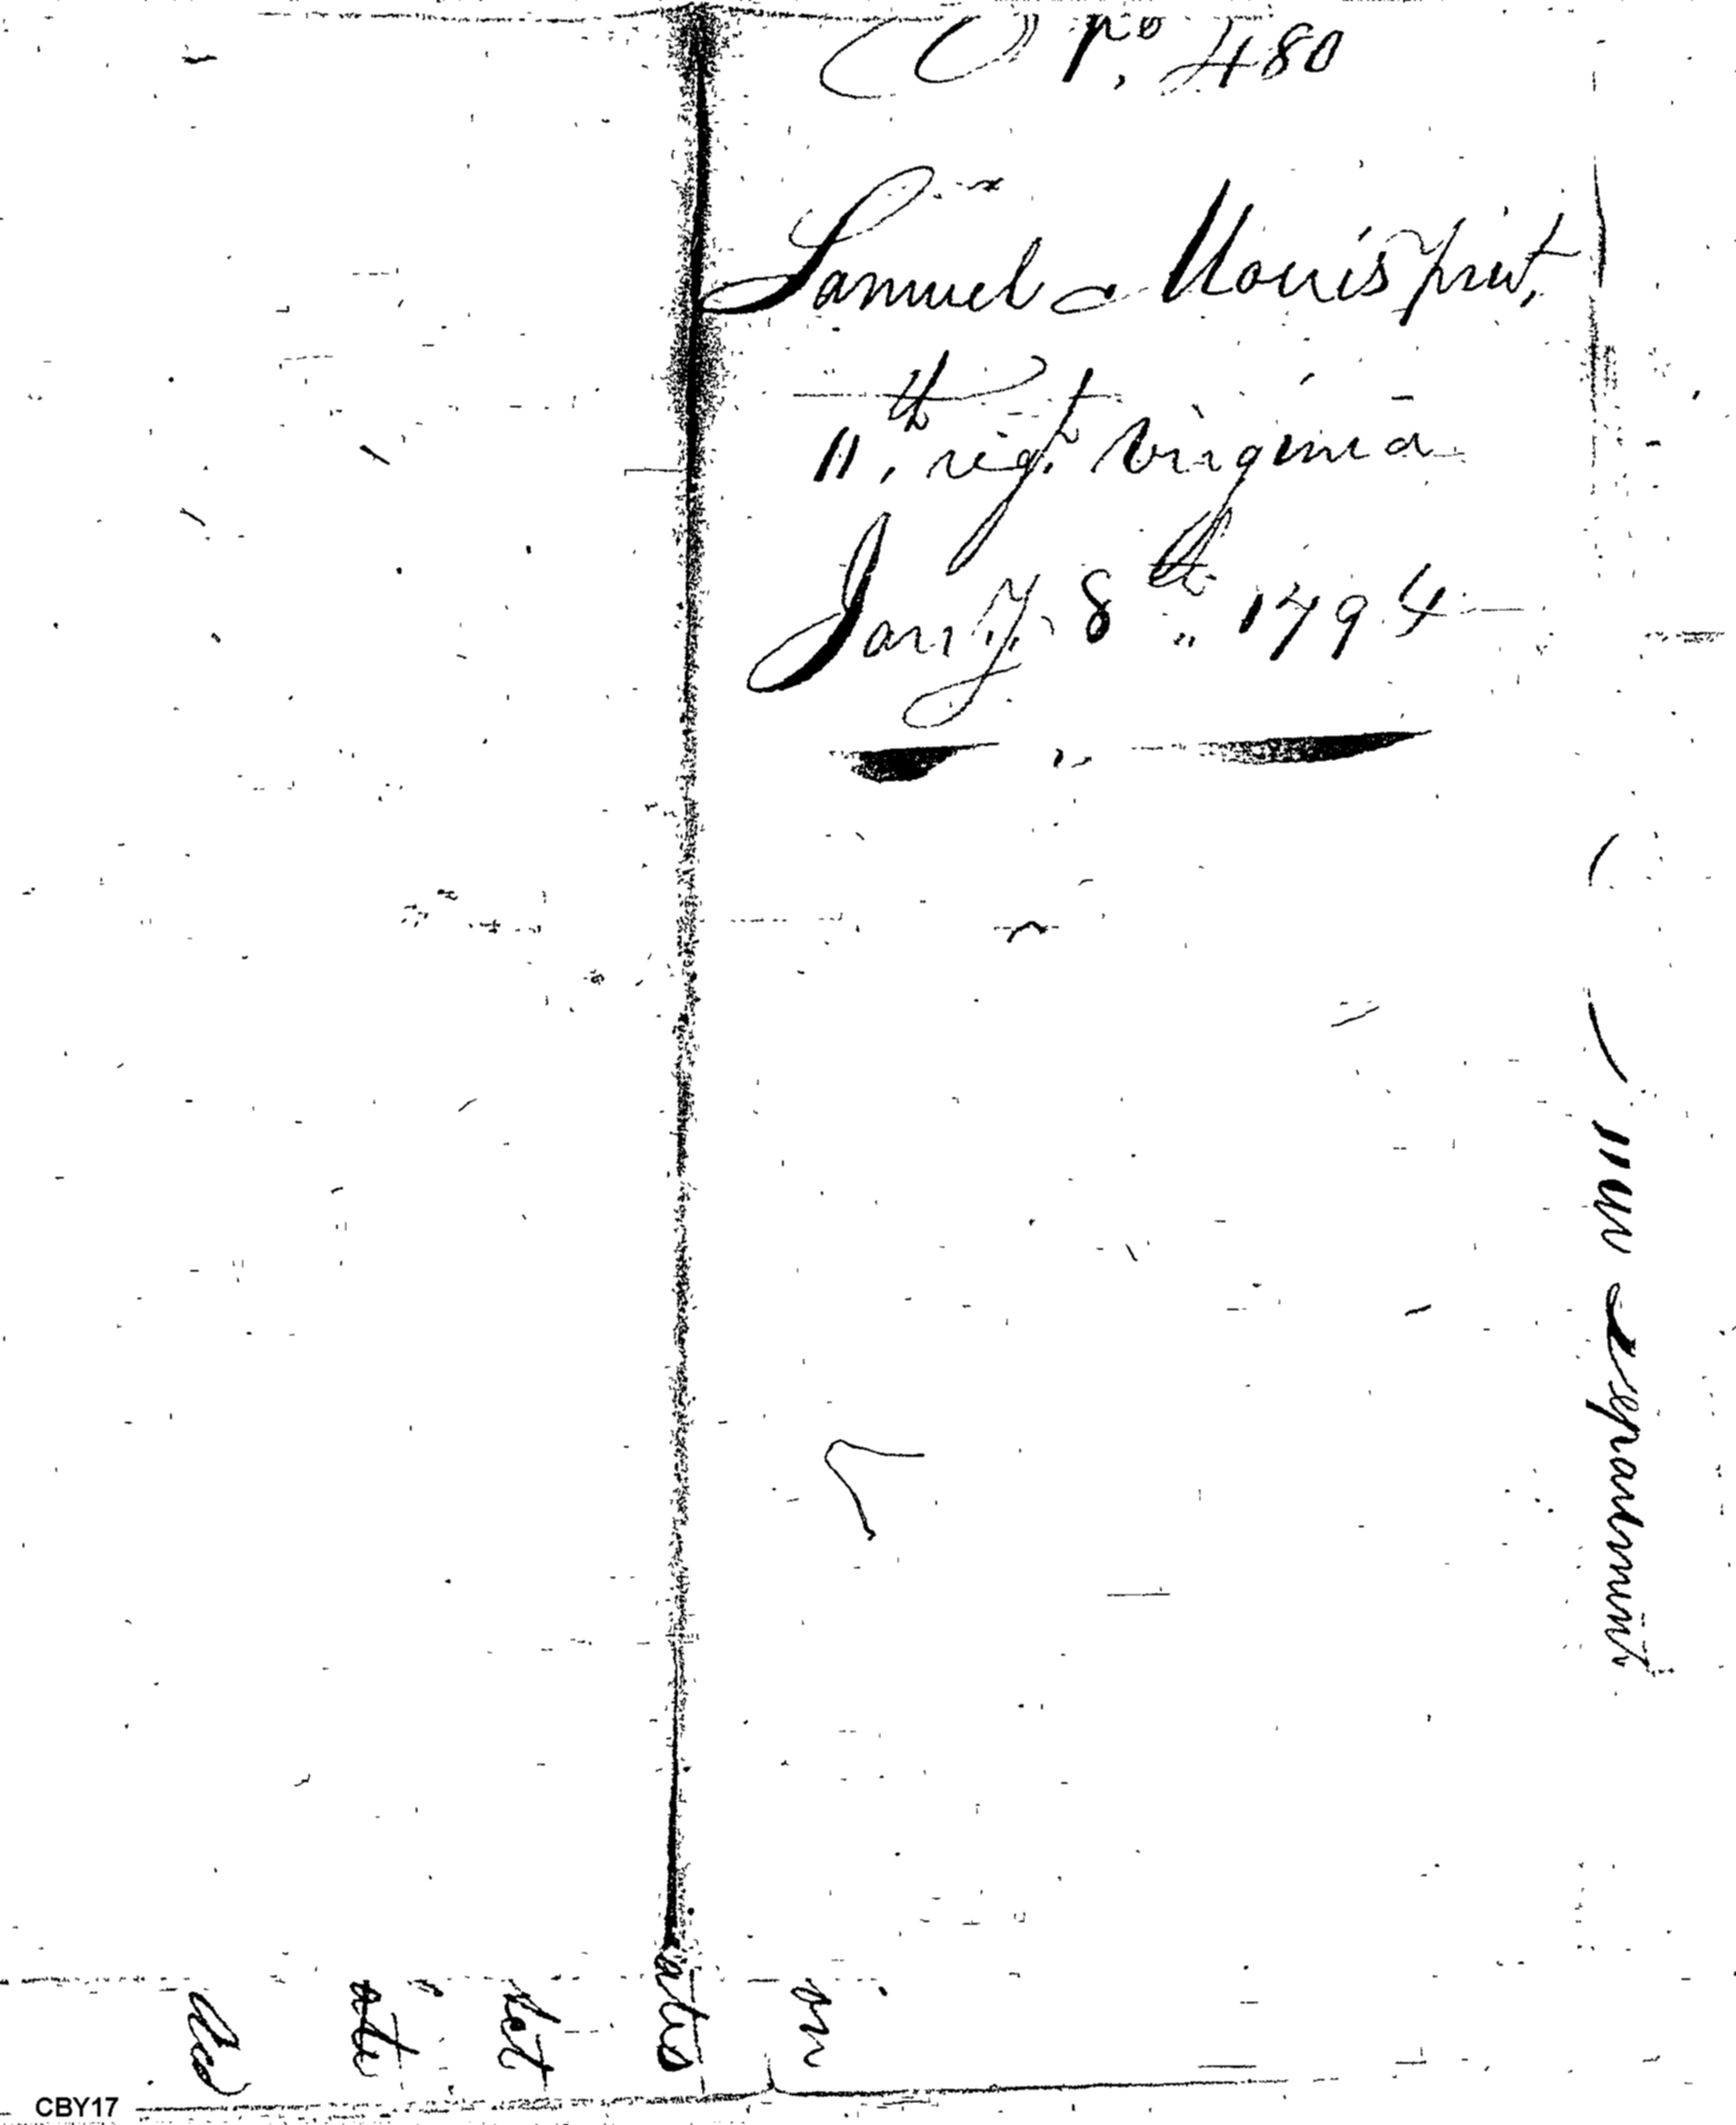 po. 480
Samuel Morris privt.
11th. regt. Virginia
Jany. 8th. 1794
War Department
on
CBY17